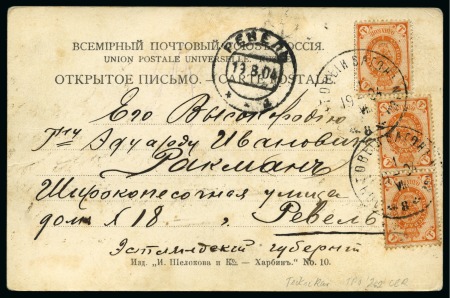 ВСЕМІРНЫЙ ПОЧТОВЫЙ СОЮЗЪ. РОССІЯ.
UNION POSTALE UNIVERSELLE. RUSSIE.
ОТКРЫТОЕ ПИСЬМО. — CARTE POSTALE.
РЕВЕЛЬ
Его Высокородію
Эдуарду Ивановичу
Ракманъ
Широкопесочная улица
домъ № 18 , Ревель
Эстляндской губерніи
Изд. „И. Шелокова и Ко — Харбинъ." No. 10.